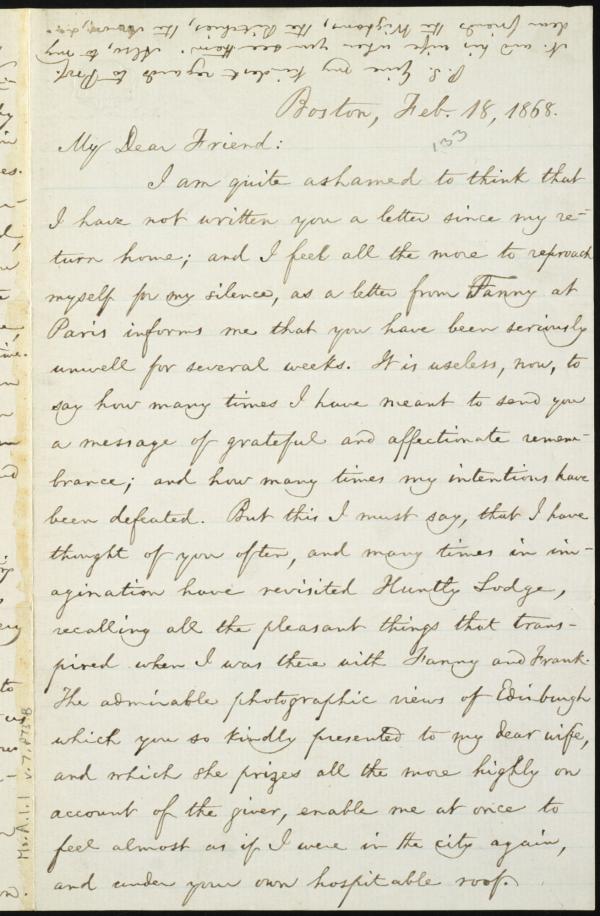 P.S. Give my kindest regards to Prof.
N. and his wife when you see them. Also, to my
dear friends the Wighams, the Ritchies, the
Boston, Feb. 18, 1868.
133
My Dear Friend:
I am quite ashamed to think that
I have not written you a letter since my re-
turn home; and I feel all the more to reproach
myself for my silence, as a letter from Fanny at
Paris informs me that you have been seriously
unwell for several weeks. It is useless, now, to
say how many times I have meant to send you
a message of grateful and affectionate remem-
brance; and how many times my intentions have
been defeated. But this I must say, that I have
thought of you often, and many times in im-
agination have revisited Huntly Lodge,
recalling all the pleasant things that trans-
pired when I was there with Fanny and Frank.
The admirable photographic views of Edinburgh
which you so kindly presented to my dear wife,
and which she prizes all the more highly on
account of the giver, enable me at once to
feel almost as if I were in the city again,
and under your own hospitable roof.
Ms. A. 1. 1 v. 7, p. 73B